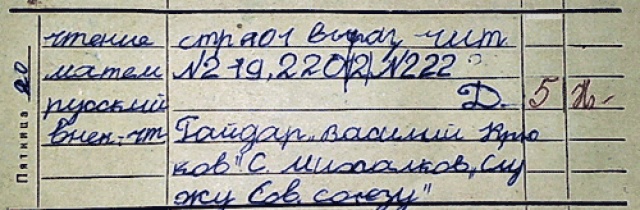 Пятница 20
чтение стр 101 выраз, чит
матем №219, 220(2), №222
русский Д. 5
внек. чт Гайдар „Василий Крю
ков" С. Михалков „Слу
жу Сов. союзу"